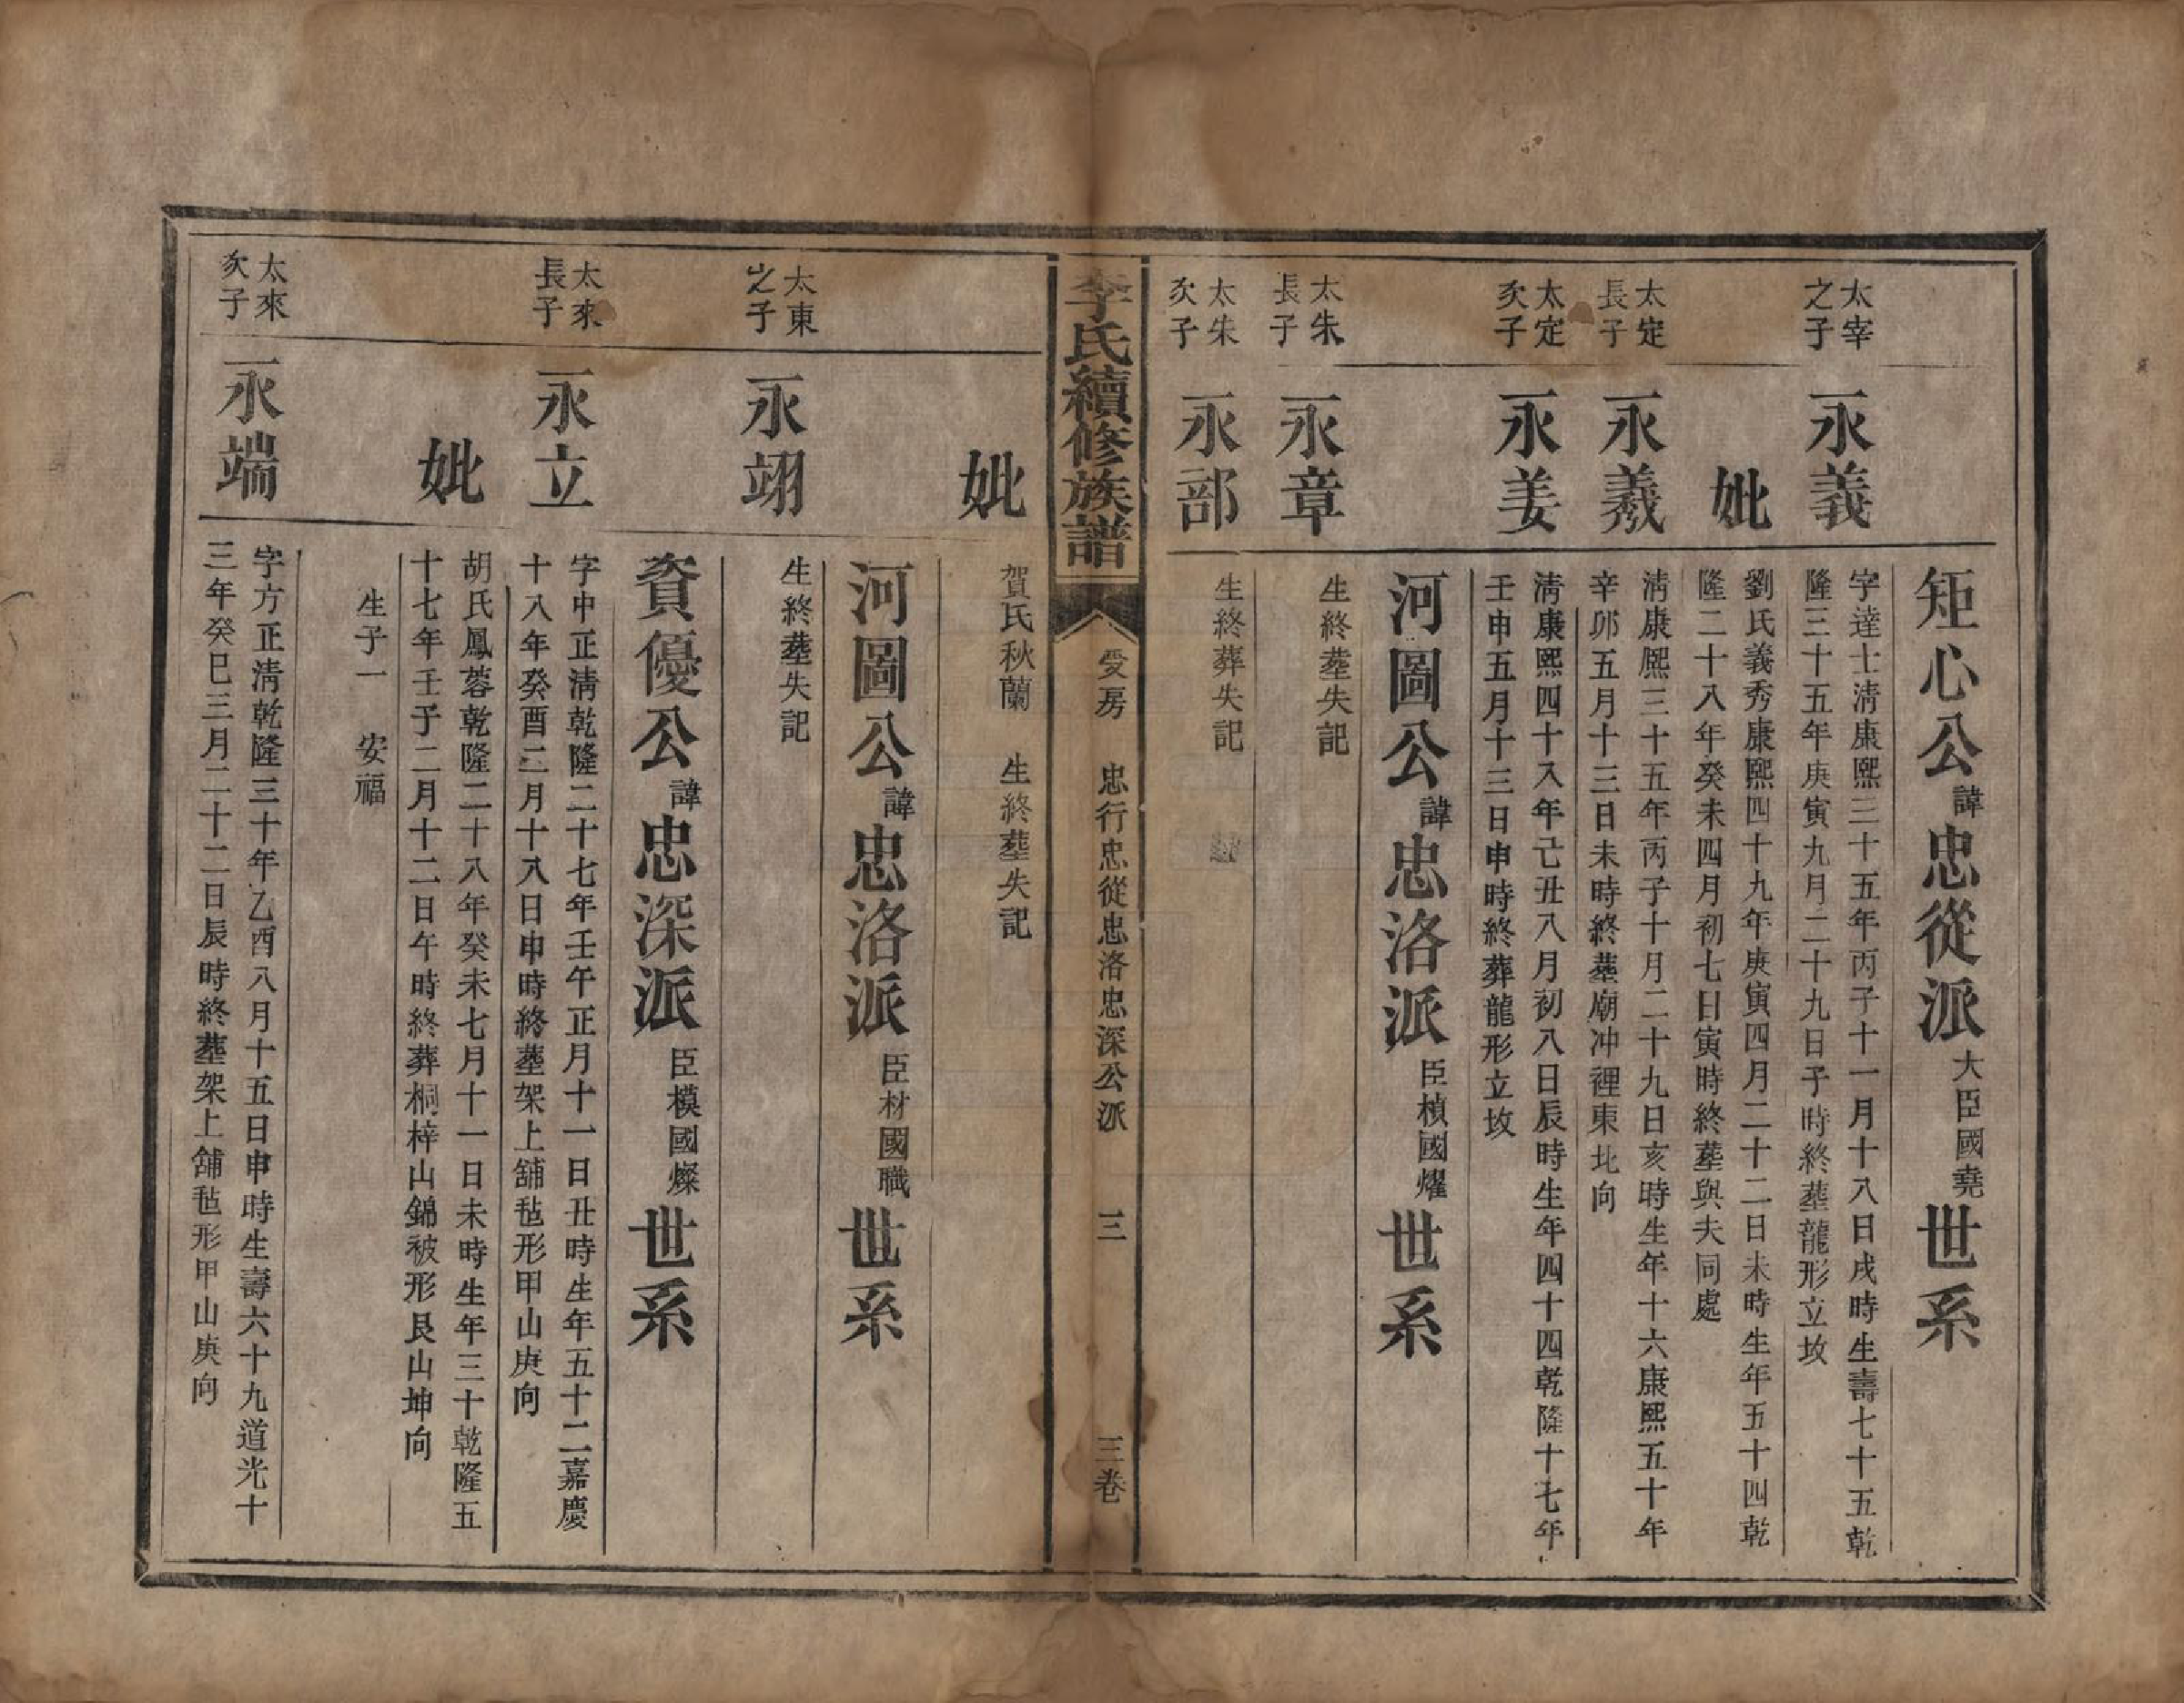 矩心公諱忠從派大臣國堯世系
太宰之子
永義
字達士淸康熙三十五年丙子十一月十八日戌時生壽七十五乾
隆三十五年庚寅九月二十九日子時終塟龍形立坟
妣
劉氏義秀康熙四十九年庚寅四月二十二日未時生年五十四乾
隆二十八年癸未四月初七日寅時終塟與夫同處
太定長子
永羲
淸康熙三十五年丙子十月二十九日亥時生年十六康熙五十年
辛卯五月十三日未時終塟廟冲裡東北向
太定次子
永姜
淸康熙四十八年己丑八月初八日辰時生年四十四乾隆十七年
壬申五月十三日申時終葬龍形立坟
河圖公諱忠洛派臣楨國燿世系
太朱長子
永章
生終塟失記
太朱次子
永部
生終葬失記
李氏續修族譜
受房 忠行忠從忠洛忠深公派 三 三卷
妣
賀氏秋蘭 生終塟失記
河圖公諱忠洛派臣材國職世系
太東之子
永翊
生終塟失記
資優公諱忠深派臣模國燦世系
太來長子
永立
字中正淸乾隆二十七年壬午正月十一日丑時生年五十二嘉慶
十八年癸酉二月十八日申時終塟架上舖毡形甲山庚向
妣
胡氏鳳蓉乾隆二十八年癸未七月十一日未時生年三十乾隆五
十七年壬子二月十二日午時終葬桐梓山錦被形艮山坤向
生子一 安福
太來次子
永端
字方正淸乾隆三十年乙酉八月十五日申時生壽六十九道光十
三年癸巳三月二十二日辰時終塟架上舖毡形甲山庚向